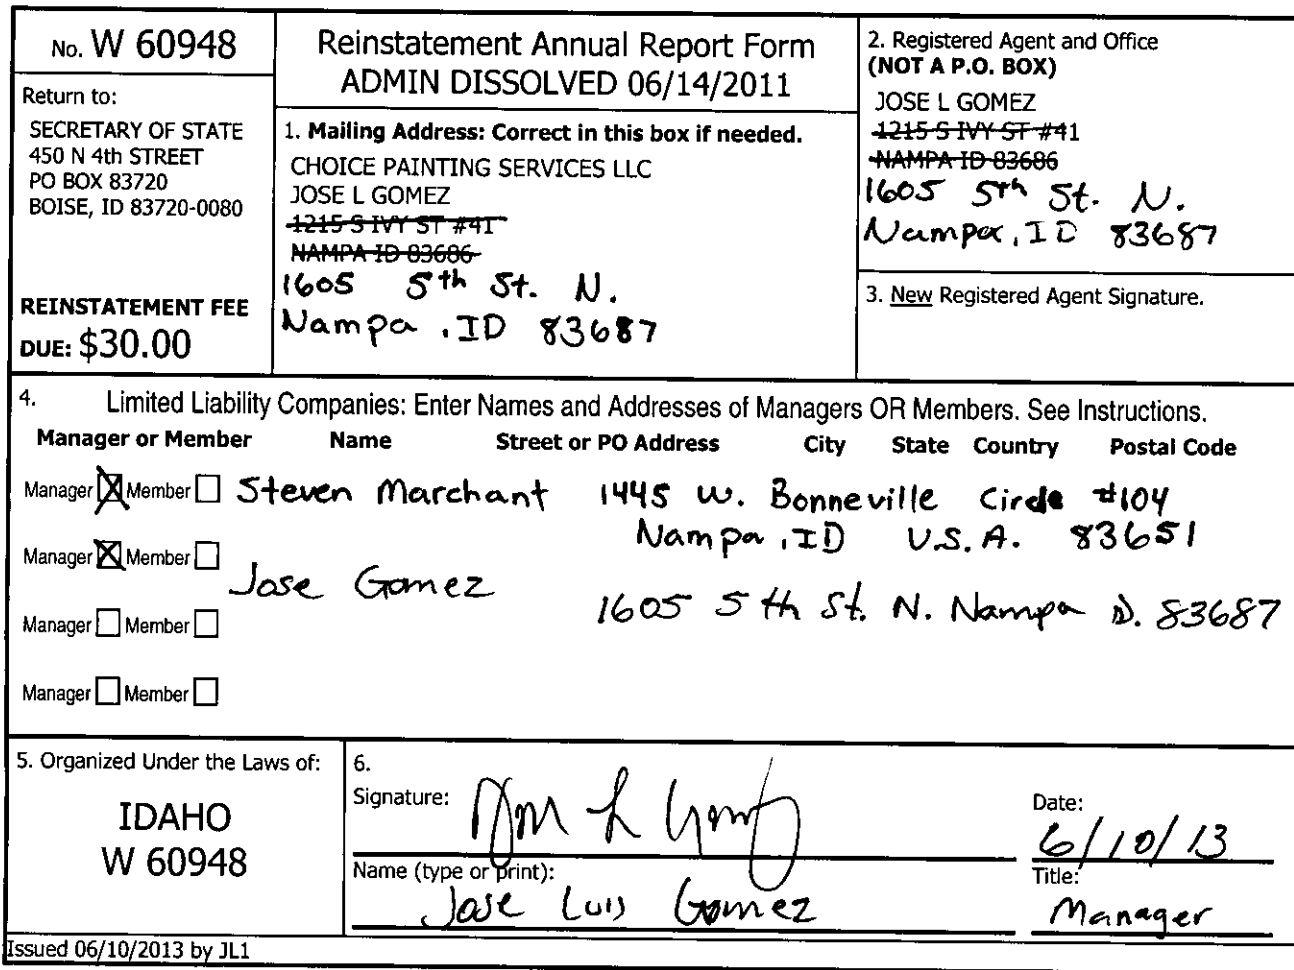 No. W 60948
Return to:
SECRETARY OF STATE
450 N 4th STREET
PO BOX 83720
BOISE, ID 83720-0080
REINSTATEMENT FEE
DUE: $30.00
Reinstatement Annual Report Form
ADMIN DISSOLVED 06/14/2011
1. Mailing Address: Correct in this box if needed.
CHOICE PAINTING SERVICES LLC
JOSE L GOMEZ
1215 S IVY ST #41
NAMPA ID 83686
1605 5th St. N.
Nampa, ID 83687
2. Registered Agent and Office
(NOT A P.O. BOX)
JOSE L GOMEZ
1215 S IVY ST #41
NAMPA ID 83686
1605 5th St. N.
Nampa, ID 83687
3. New Registered Agent Signature.
4. Limited Liability Companies: Enter Names and Addresses of Managers OR Members. See Instructions.
Manager or Member Name Street or PO Address City State Country Postal Code
Manager Member Steven Marchant 1445 W. Bonneville Circle #104
Nampa, ID U.S.A. 83651
Manager Member Jose Gomez
1605 5th St. N. Nampa D. 83687
Manager Member
Manager Member
5. Organized Under the Laws of:
IDAHO
W 60948
6.
Signature:
Date:
6/10/13
Name (type or print):
Jose Luis Gomez
Title:
Manager
Issued 06/10/2013 by JL1